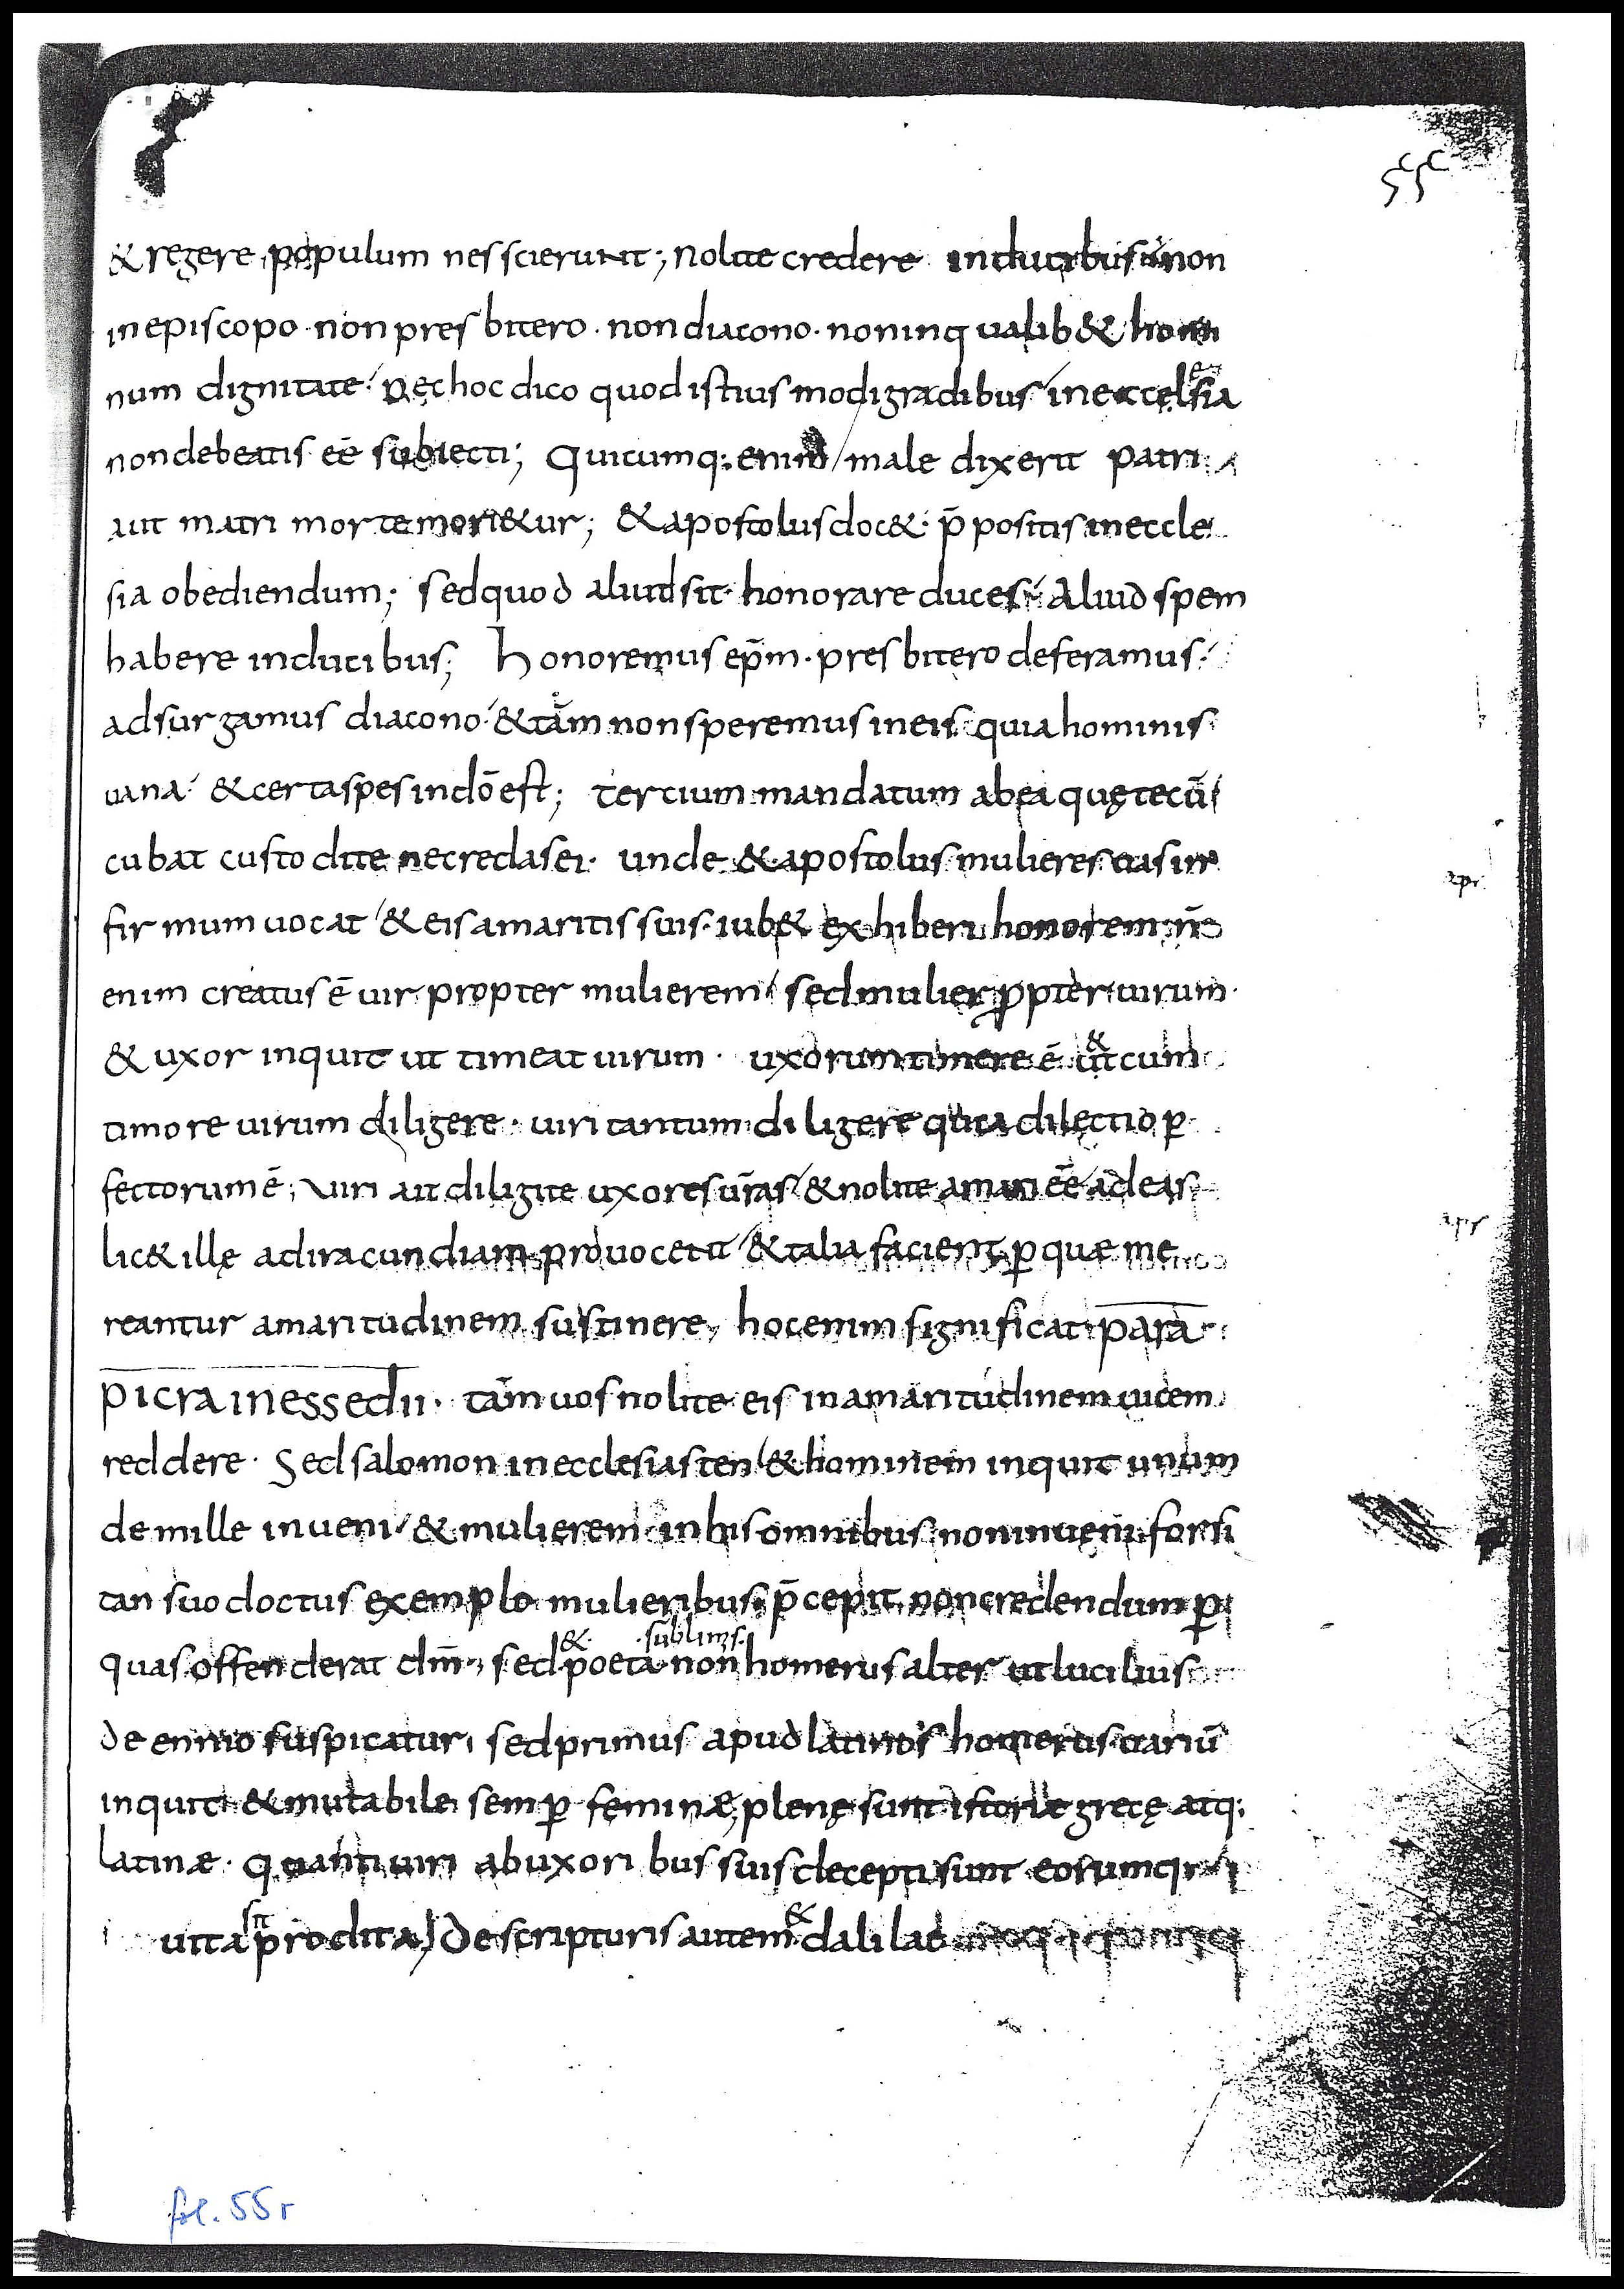 55
& regere populum nesscierunt; Nolite credere inducibus non
in episcopo · non presbitero · non diacono · non in qualib& homi
num dignitate · Nec hoc dico quod istius modi gradibus in eccelsia
non debeatis eē subiecti; Quicumq; enim male dixerit patri
aut matri morte mori&ur; & apostolus doc& · p̄positis in eccle
sia obediendum; sed quod aliud sit · honorare duces · Aliud spem
habere inducibus; Honoremus ep̄m · presbitero deferamus ·
adsurgamus diacono · & tam̄ non speremus in eis quia hominis
uana · & certa spes in dō est; tercium mandatum ab ea quę tecū
cubat custodite ne credas ei · unde & apostolus mulieres uas in
firmum uocat & eis amaritis suis · iub& exhiberi honorem n̄
enim creatus ē uir propter mulierem sed mulier ꝓpter uirum ·
& uxor inquit ut timeat uirum · uxorum timere ē ut & cum
timore uirum diligere · uiri tantum diligere quia dilectio ꝑ
fectorum ē; Viri ait diligite uxores ur̄as & nolite amari eē ad eas
lic& illę ad iracundiam prouocent & talia facient ꝑ quae me
reantur amaritudinem sustinere, hoc enim significat para
picrainessedii · tam̄ uos nolite eis in amaritudinem uicem
reddere · Sed salomon in ecclesiasten & hominem inquit unum
de mille inueni & mulierem in his omnibus non inueni forsi
tan suo doctus exemplo mulieribus p̄cepit non credendum ꝑ
quas offenderat dm̄ · sed & poeta sublimis non homerus alter ut lucilius
de ennio suspicatur, sed primus apud latinos homerus uariū
inquit & mutabile semꝑ feminæ; plenę sunt istoriæ grecę atq;
latinæ · quanti uiri ab uxoribus suis decepti sunt eorumq;
uita sit prodita, De scripturis autem & dalilae
apr
apr
fol. 55r